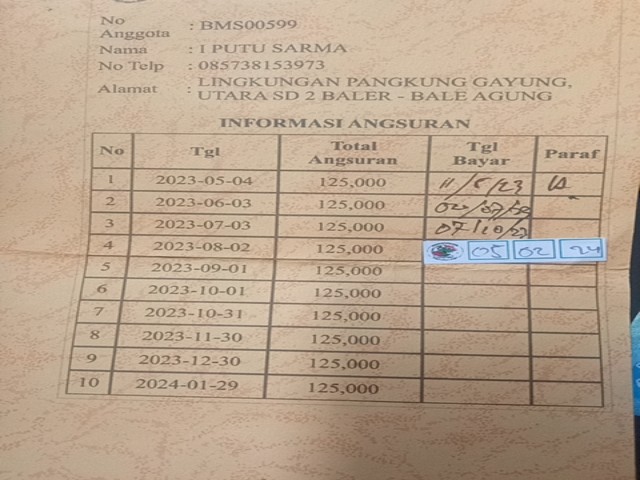 No
Anggota : BMS00599
Nama : I PUTU SARMA
No Telp : 085738153973
Alamat : LINGKUNGAN PANGKUNG GAYUNG,
UTARA SD 2 BALER - BALE AGUNG
INFORMASI ANGSURAN
No Tgl Total Angsuran Tgl Bayar Paraf
1 2023-05-04 125,000 11/5/23
2 2023-06-03 125,000
3 2023-07-03 125,000 07/10/23
4 2023-08-02 125,000 05 02 24
5 2023-09-01 125,000
6 2023-10-01 125,000
7 2023-10-31 125,000
8 2023-11-30 125,000
9 2023-12-30 125,000
10 2024-01-29 125,000